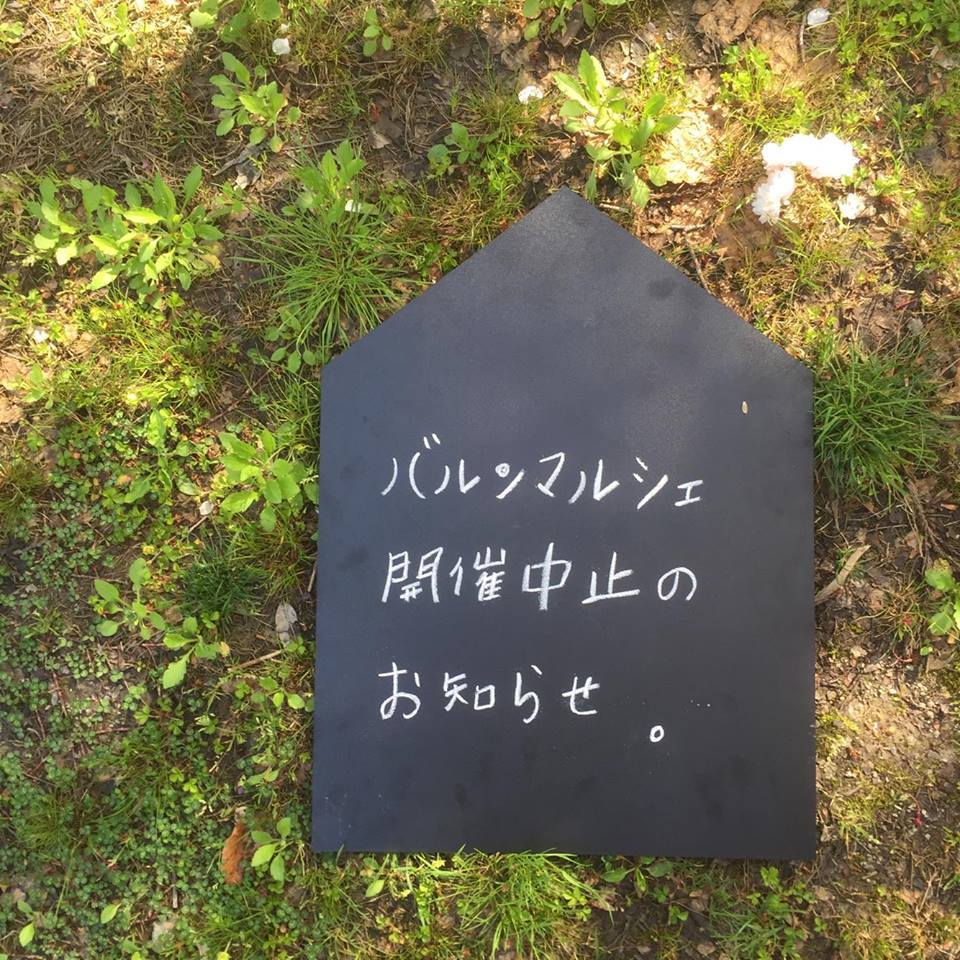 バルンマルシェ
開催中止の
お知らせ。